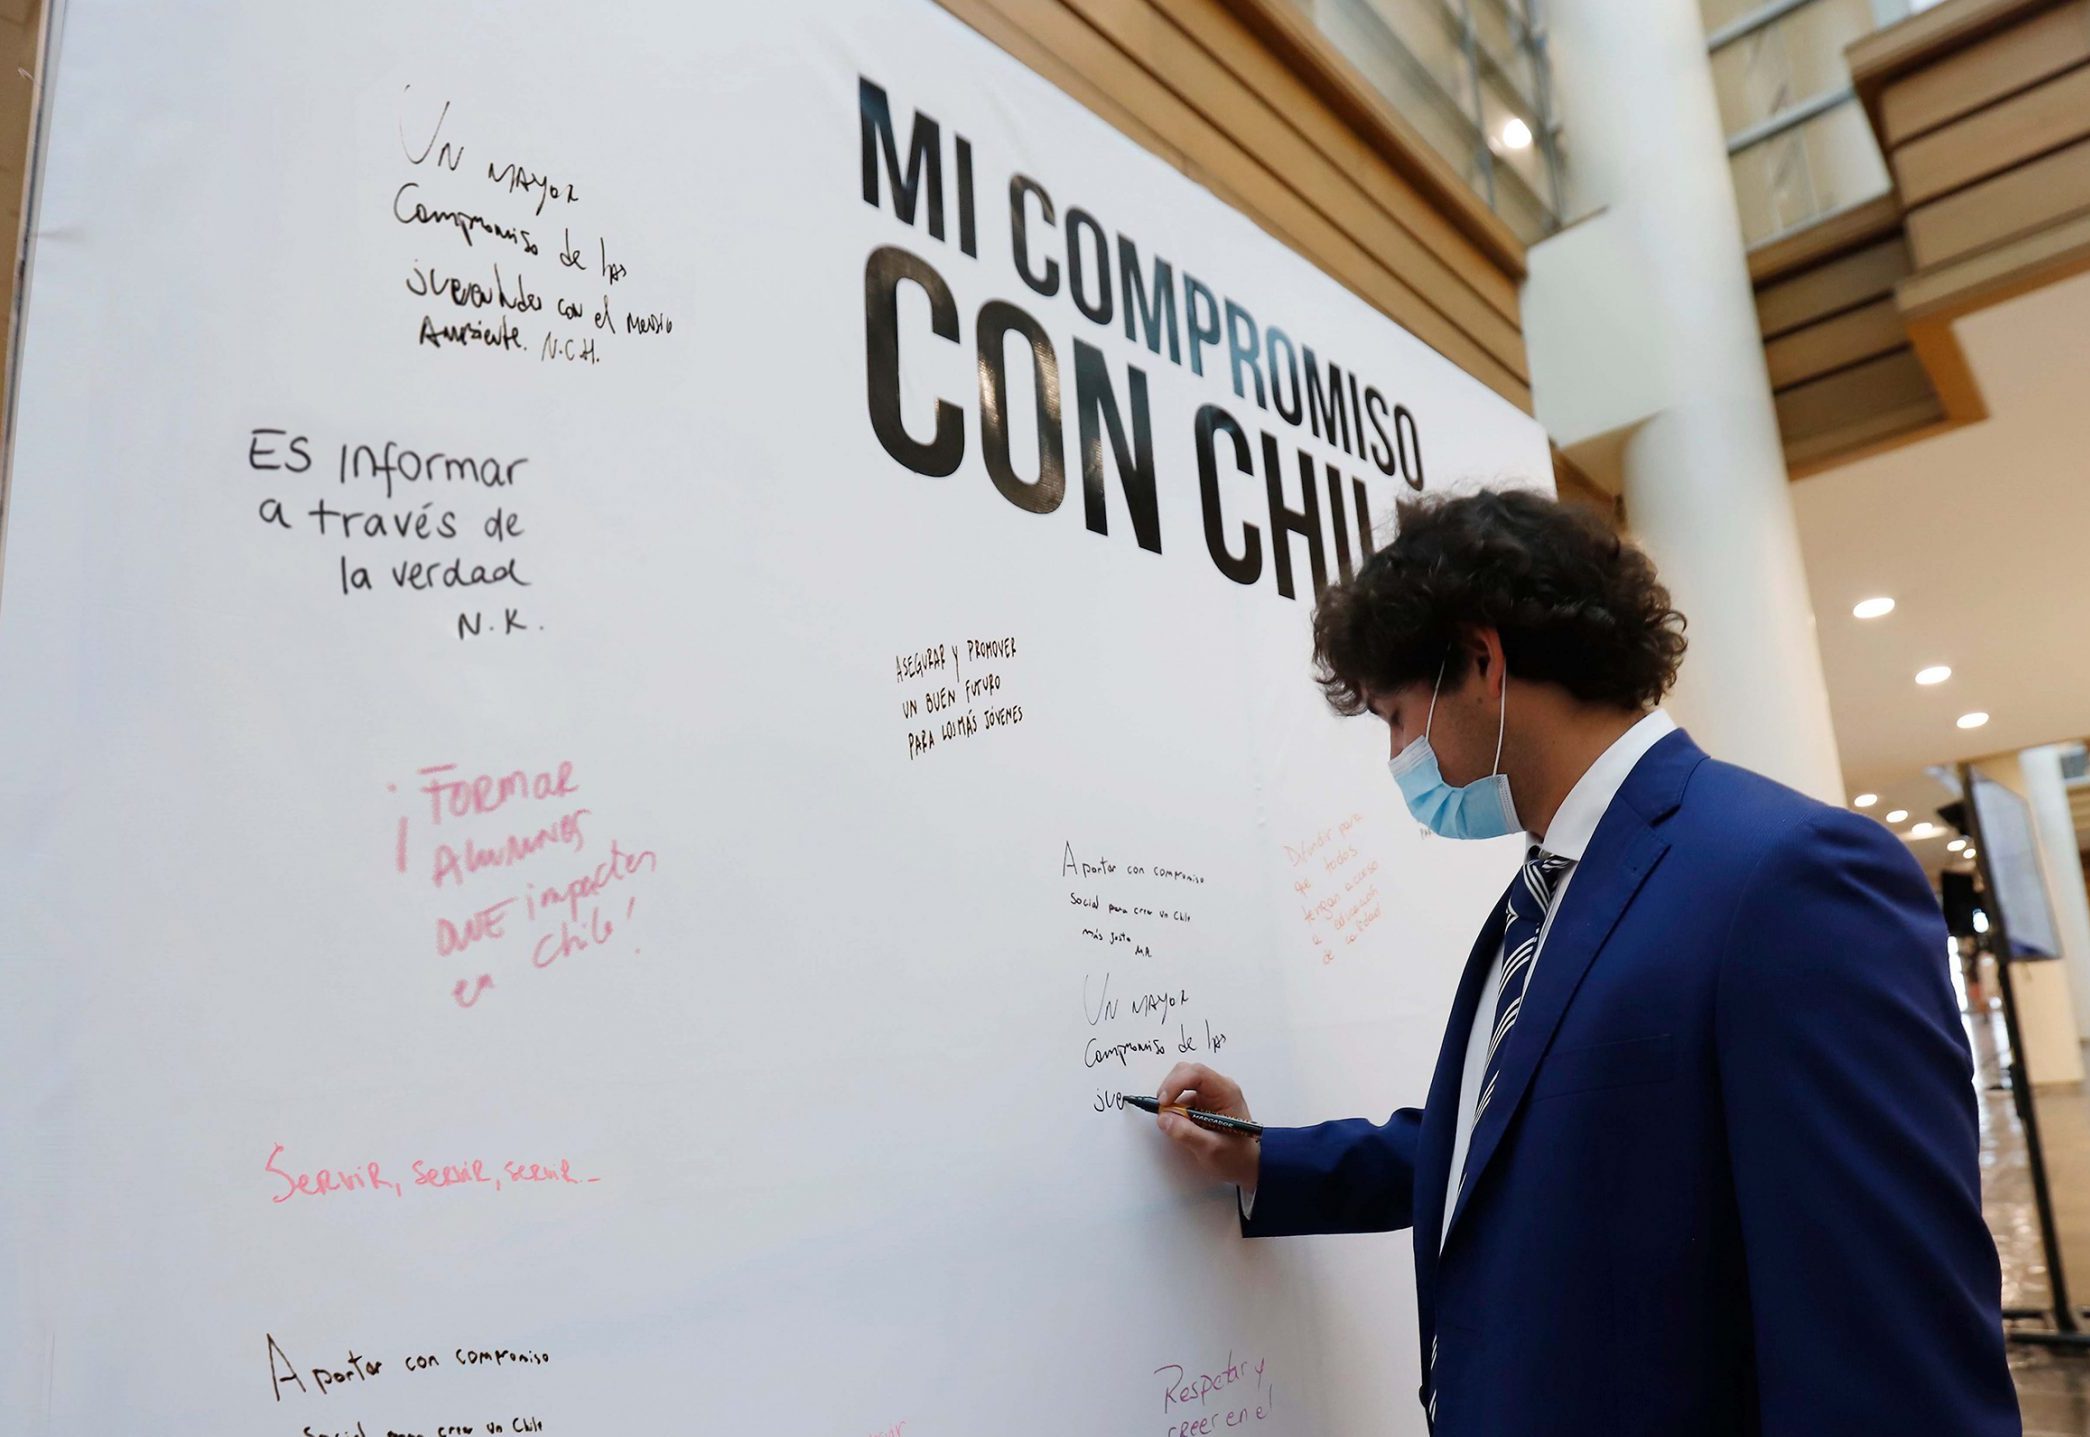 MI COMPROMISO
CON CHIL
UN MAYOR
Compromiso de las
juventudes con el Medio
Ambiente. N.C.H.
ES INformar
a través de
la verdad
N.K.
¡FORMAR
ALUMNOS
QUE impacten
en Chile!
SERVIR, SERVIR, SERVIR...
Aportar con compromiso
Social para crear un Chile
ASEGURAR Y PROMOVER
UN BUEN FUTURO
PARA LOS MÁS JÓVENES
Aportar con compromiso
Social para crear un Chile
más justo
M.R
UN MAYOR
Compromiso de las
juve
Difundir para
que todos
tengan acceso
a educación
de calidad
Respetar y
creer en el
MARCADOR